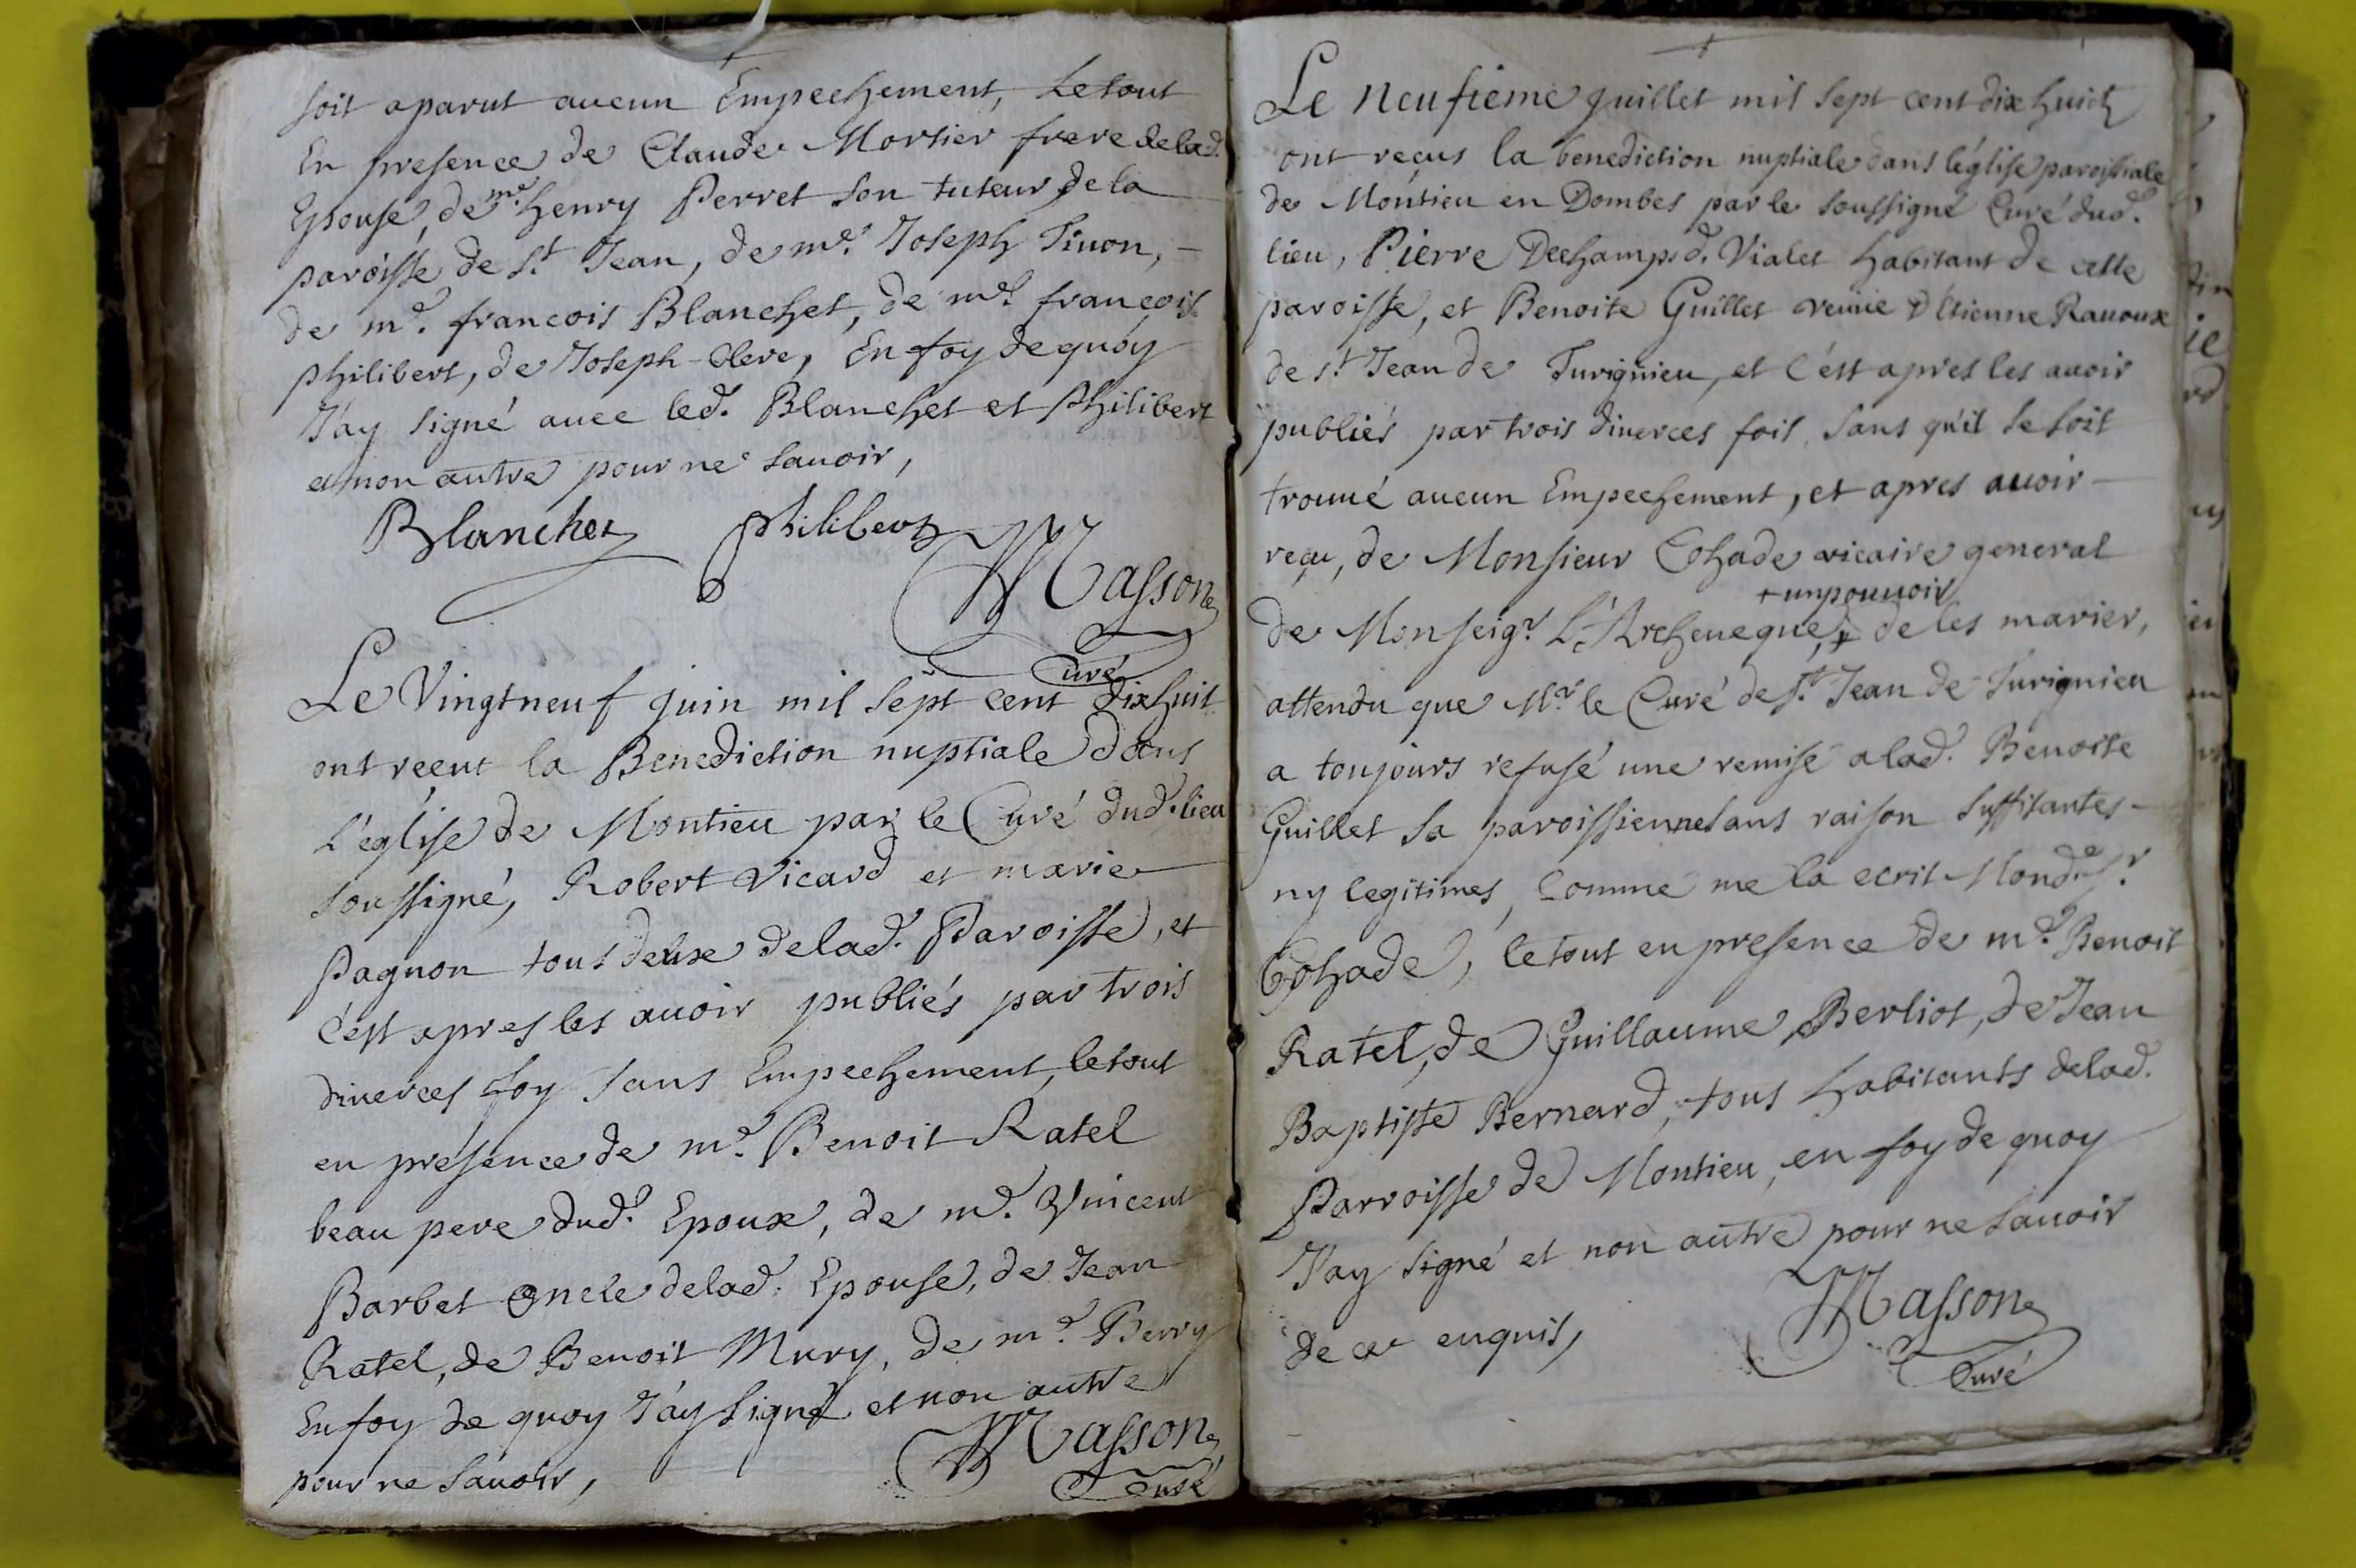 soit aparut aucun Empechement, Le tout
En presence de Claude Mortier frere de lad.
Epouse, de me. henry Perret son tuteur de la
paroisse de St Jean, de me. Joseph Tiuon,
de me. francois Blanchet, de me. francois
philibert, de Joseph Clere, En foy de quoy
J'ay signé auec led. Blanchet et philibert
et non autre pour ne sauoir,
Blanchet philibert
Masson
Curé
Le Vingt neuf juin mil sept cent dix huit
ont reçut la Benediction nuptiale dans
L'église de Montieu par le Curé dud. lieu
soussigné, Robert Vicard et marie
Pagnon tous deux de lad. Paroisse, et
c'est apres les auoir publiés par trois
diuerces foy sans Empechement, le tout
en présence de me. Benoit Ratel
beau pere dud. Epoux, de me. Vincent
Barbet oncle de lad. Epouse, de Jean
Ratel, de Benoit Mury, de me. Berry
En foy de quoy J'ay signé et non autre
pour ne sauoir,
Masson
Curé
Le neufieme juillet mil sept cent dix huict
ont reçus la benediction nuptiale dans léglise paroissiale
de Montieu en Dombes par le soussigné Curé dud.
lieu, Pierre Dechamp d. Vialet habitant de cette
paroisse, et Benoite Guillet veuue d'Etienne Rauoux
de st Jean de Turignieu, et c'est apres les auoir
publiés par trois diuerces fois sans qu'il se soit
trouué aucun Empechement, et apres auoir
reçu, de Monsieur Cohade vicaire general
+ un pouuoir
de Monseigr. L'Archeueque, + de les marier,
attendu que Mr. le Curé de St Jean de Turignieu
a toujours refusé une remise a lad. Benoite
Guillet sa paroissienne sans raison suffisantes
ny legitimes, Comme me la ecrit Mond. Sr.
Cohade, le tout en presence de me. Benoit
Ratel, de Guillaume Berliot, de Jean
Baptiste Bernard, tous habitants de lad.
Parroisse de Montieu, en foy de quoy
J'ay signé et non autre pour ne sauoir
de ce enquis,
Masson
Curé